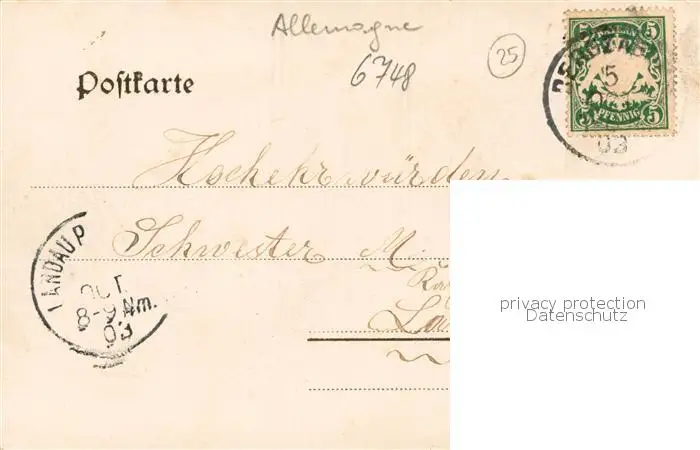 Allemagne
6748
25
Postkarte
5 5
5 PFENNIG 5
5
03
Hochehrwürden
Schwester M
LANDAU P
OCT.
8-9 Nm.
03
privacy protection
Datenschutz